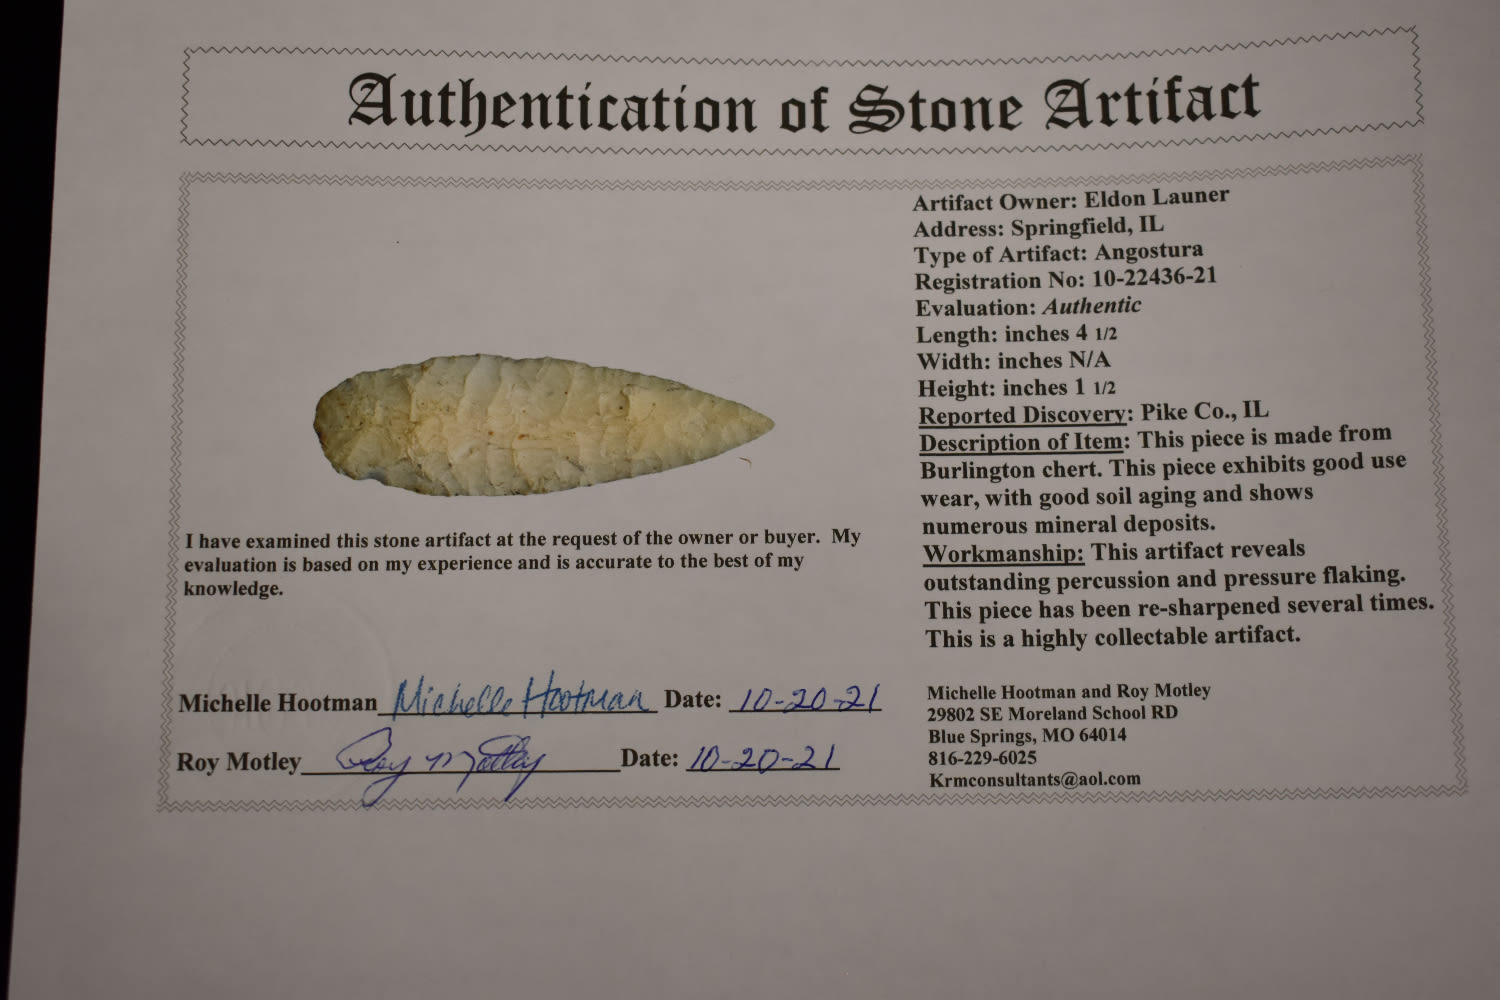 Authentication of Stone Artifact
Artifact Owner: Eldon Launer
Address: Springfield, IL
Type of Artifact: Angostura
Registration No: 10-22436-21
Evaluation: Authentic
Length: inches 4 1/2
Width: inches N/A
Height: inches 1 1/2
Reported Discovery: Pike Co., IL
Description of Item: This piece is made from
Burlington chert. This piece exhibits good use
wear, with good soil aging and shows
numerous mineral deposits.
Workmanship: This artifact reveals
outstanding percussion and pressure flaking.
This piece has been re-sharpened several times.
This is a highly collectable artifact.
I have examined this stone artifact at the request of the owner or buyer. My
evaluation is based on my experience and is accurate to the best of my
knowledge.
Michelle Hootman Michelle Hootman Date: 10-20-21
Roy Motley Roy Motley Date: 10-20-21
Michelle Hootman and Roy Motley
29802 SE Moreland School RD
Blue Springs, MO 64014
816-229-6025
Krmconsultants@aol.com